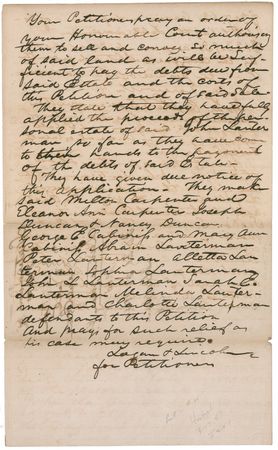 Your Petitioners pray an order of
your Honourable Court authorising
them to sell and convey so much
of said land as will be suf-
ficient to pay the debts due from
said Estate and the costs of
this Petition and of said Sale
They state that they have fully
applied the proceeds of the per-
sonal estate of said John Lauter
man so far as they have come
to their hands to the payment
of the debts of said Estate
They have given due notice of
this application. They make
said Milton Carpenter and
Eleanor Ann Carpenter Joseph
Duncan & Nancy Duncan
George C Cabaniss and Mary Ann
Cabiniss Abram Lauterman
Peter Lauterman Alletta Lau
terman Sophia Lauterman
John L Lauterman Sarah C.
Lauterman Melinda Lauter-
man and Charlotte Lauterman
defendants to this Petition
and prays for such relief as
his case may require.
Logan & Lincoln
for Petitioners